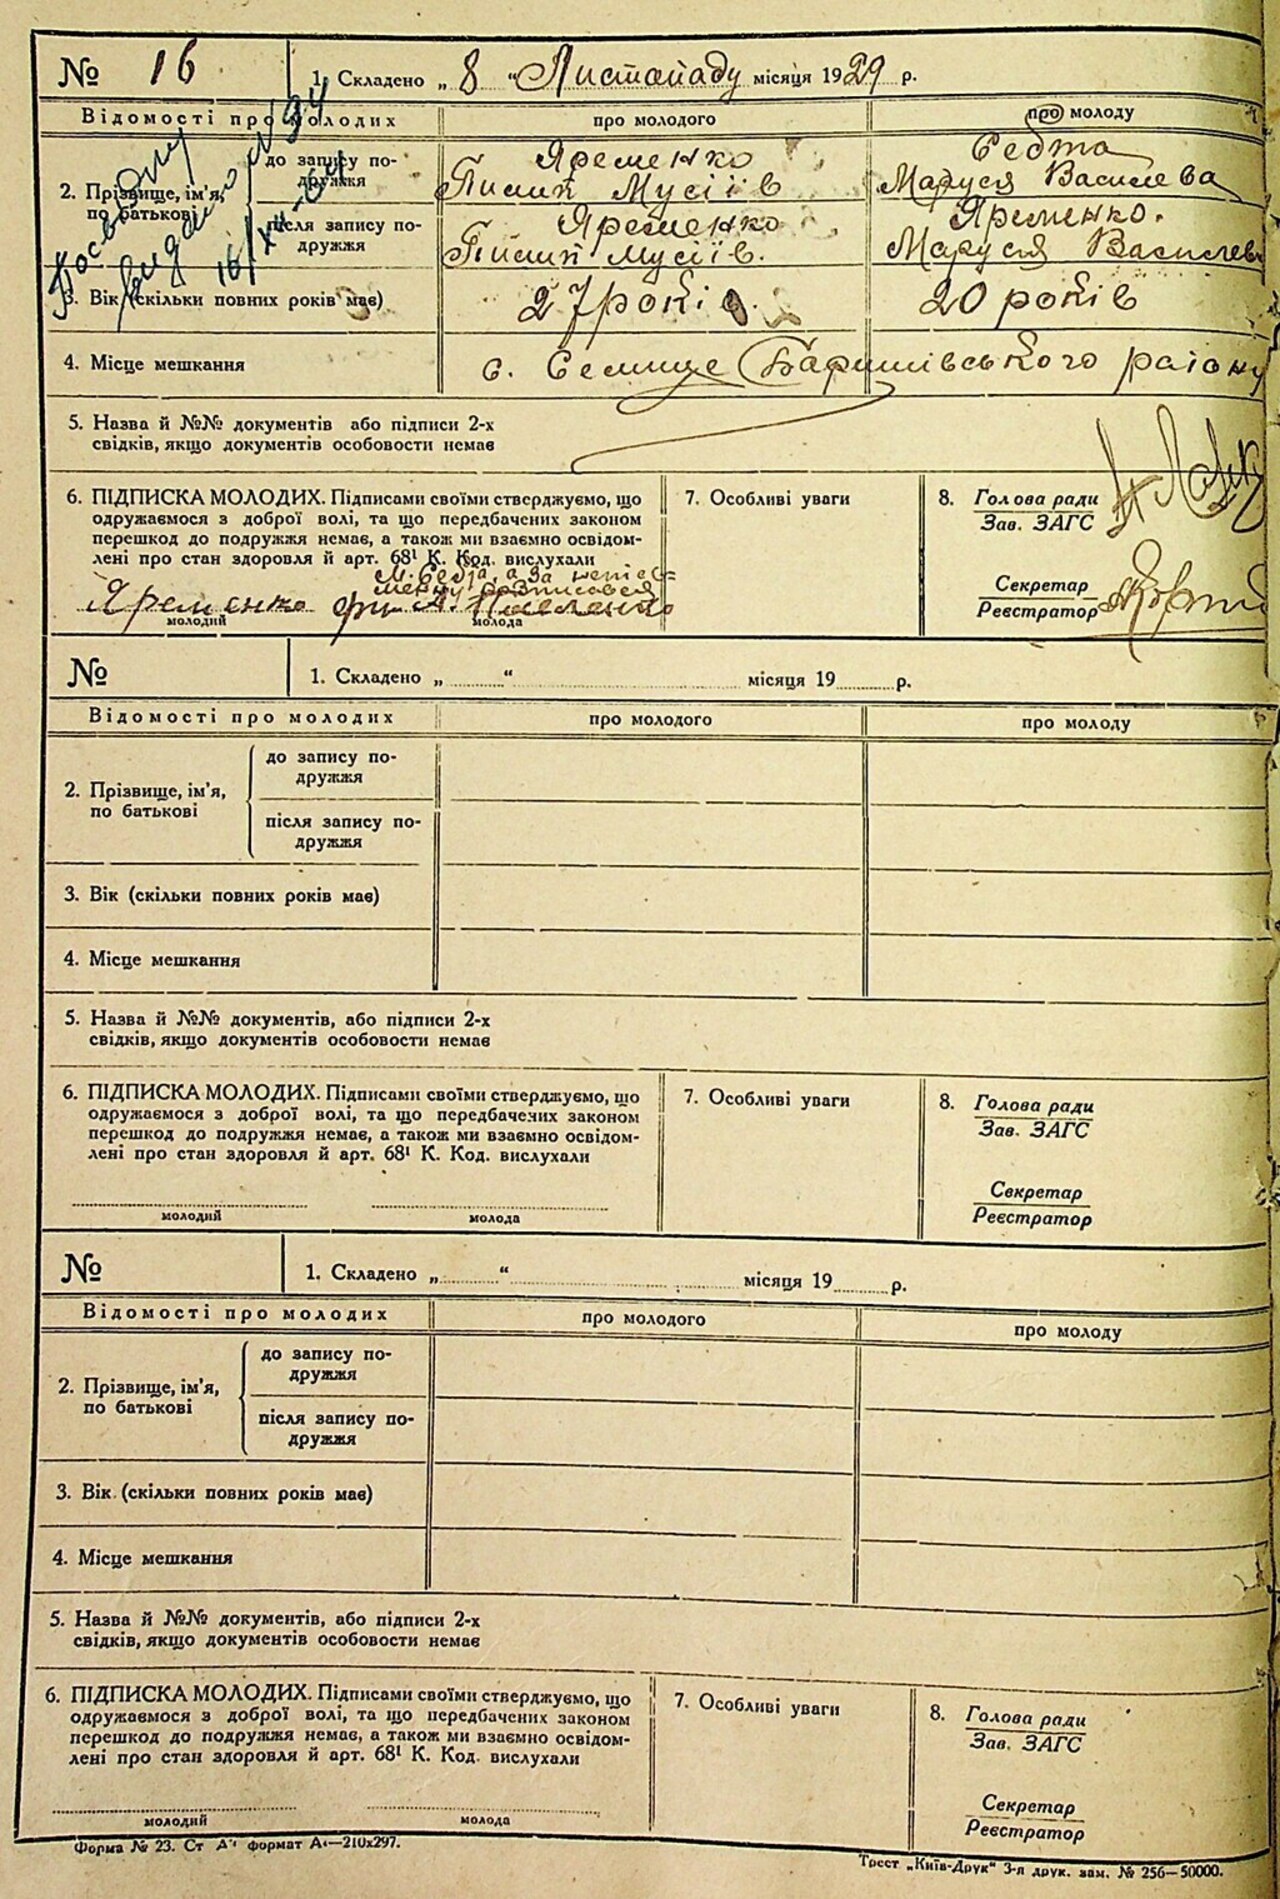 № 16
1. Складено „ 8 “ Листопаду місяця 1929 р.
Відомості про молодих
про молодого
про молоду
2. Прізвище, ім'я, по батькові
до запису по-
дружжя
Яременко
Пилип Мусіїв
Маруся Василева
після запису по-
дружжя
Яременко
Пилип Мусіїв.
Яременко.
Маруся Василев
3. Вік (скільки повних років має)
27 років.
20 років
4. Місце мешкання
с. Селище Баришівського району
5. Назва й №№ документів або підписи 2-х
свідків, якщо документів особовости немає
6. ПІДПИСКА МОЛОДИХ. Підписами своїми стверджуємо, що
одружаємося з доброї волі, та що передбачених законом
перешкод до подружжя немає, а також ми взаємно освідом-
лені про стан здоровля й арт. 68¹ К. Код. вислухали
Яременко
молодий
молода
7. Особливі уваги
8. Голова ради
Зав. ЗАГС
Секретар
Реєстратор
№
1. Складено „ “ місяця 19 р.
Відомості про молодих
про молодого
про молоду
2. Прізвище, ім'я,
по батькові
до запису по-
дружжя
після запису по-
дружжя
3. Вік (скільки повних років має)
4. Місце мешкання
5. Назва й №№ документів, або підписи 2-х
свідків, якщо документів особовости немає
6. ПІДПИСКА МОЛОДИХ. Підписами своїми стверджуємо, що
одружаємося з доброї волі, та що передбачених законом
перешкод до подружжя немає, а також ми взаємно освідом-
лені про стан здоровля й арт. 68¹ К. Код. вислухали
молодий
молода
7. Особливі уваги
8. Голова ради
Зав. ЗАГС
Секретар
Реєстратор
№
1. Складено „ “ місяця 19 р.
Відомості про молодих
про молодого
про молоду
2. Прізвище, ім'я,
по батькові
до запису по-
дружжя
після запису по-
дружжя
3. Вік (скільки повних років має)
4. Місце мешкання
5. Назва й №№ документів, або підписи 2-х
свідків, якщо документів особовости немає
6. ПІДПИСКА МОЛОДИХ. Підписами своїми стверджуємо, що
одружаємося з доброї волі, та що передбачених законом
перешкод до подружжя немає, а також ми взаємно освідом-
лені про стан здоровля й арт. 68¹ К. Код. вислухали
молодий
молода
7. Особливі уваги
8. Голова ради
Зав. ЗАГС
Секретар
Реєстратор
Форма № 23. Ст А⁴ формат А⁴—210х297.
Трест „Київ-Друк“ 3-я друк. зам. № 256—50000.